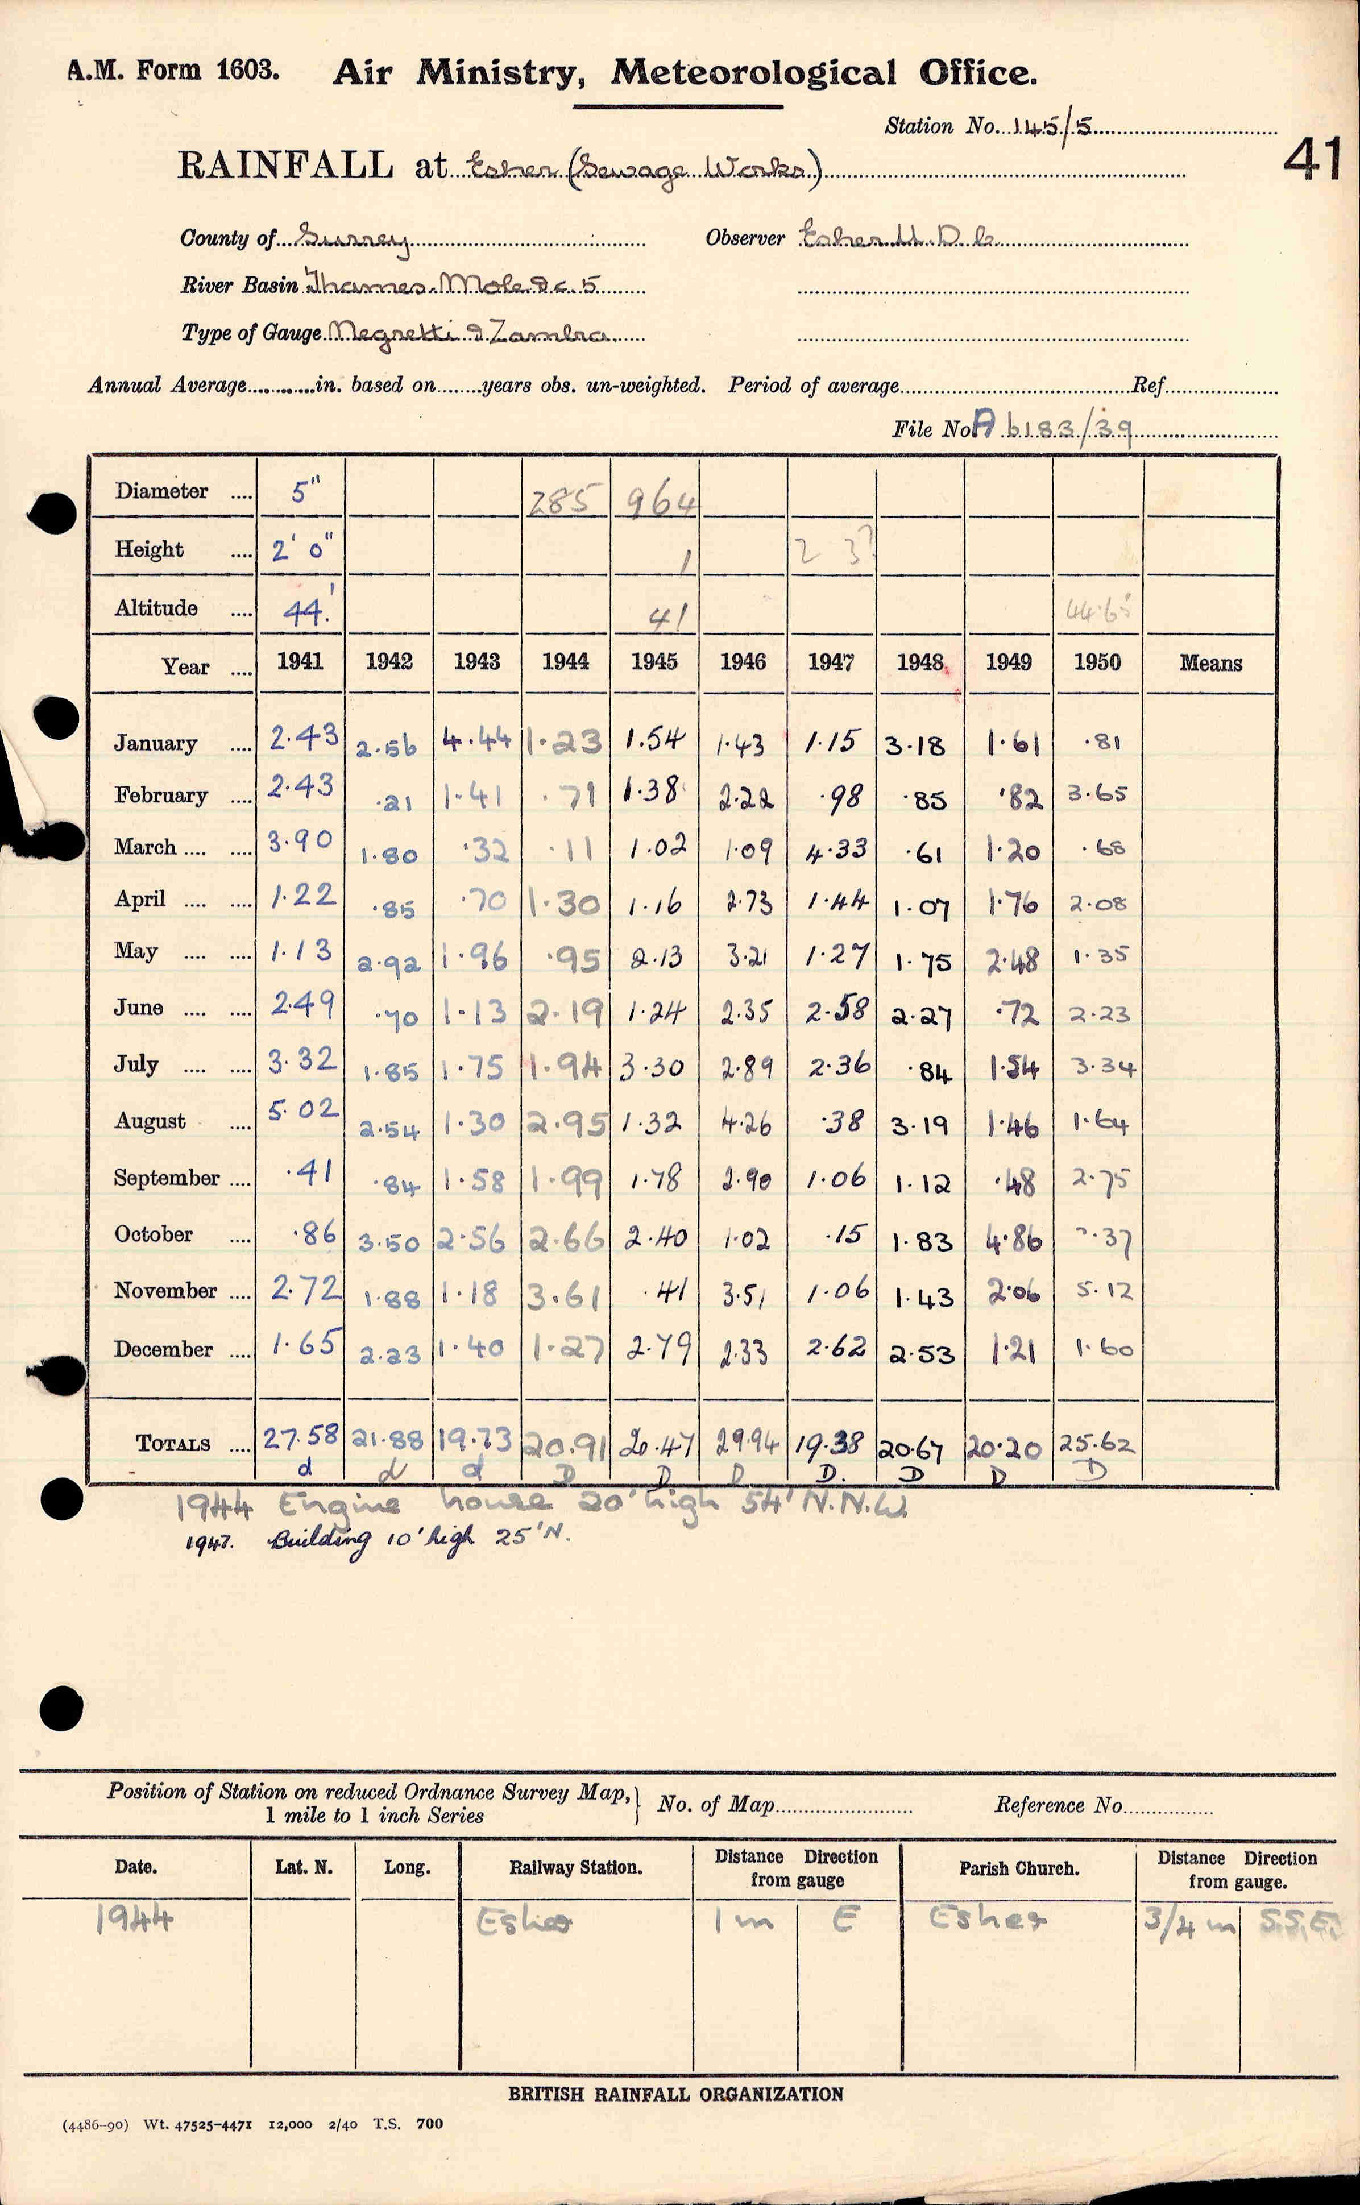 A.M. Form 1603. Air Ministry, Meteorological Office.
Station No. 145/5
41
RAINFALL at Esher (Sewage Works)
County of Surrey Observer Esher U.D.C.
River Basin Thames. Mole &c. 5
Type of Gauge Negretti & Zambra
Annual Average............in. based on.......years obs. un-weighted. Period of average Ref.
File No. A 6183/39
Diameter .... 5" 285 964
Height .... 2' 0" 1 2 3?
Altitude .... 44.' 41 44.6'
Year .... 1941 1942 1943 1944 1945 1946 1947 1948 1949 1950 Means
January .... 2.43 2.56 4.44 1.23 1.54 1.43 1.15 3.18 1.61 .81
February .... 2.43 .21 1.41 .71 1.38 2.22 .98 .85 .82 3.65
March .... .... 3.90 1.80 .32 .11 1.02 1.09 4.33 .61 1.20 .68
April .... .... 1.22 .85 .70 1.30 1.16 2.73 1.44 1.07 1.76 2.08
May .... .... 1.13 2.92 1.96 .95 2.13 3.21 1.27 1.75 2.48 1.35
June .... .... 2.49 .70 1.13 2.19 1.24 2.35 2.58 2.27 .72 2.23
July .... .... 3.32 1.85 1.75 1.94 3.30 2.89 2.36 .84 1.54 3.34
August .... 5.02 2.54 1.30 2.95 1.32 4.26 .38 3.19 1.46 1.64
September .... .41 .84 1.58 1.99 1.78 2.90 1.06 1.12 .48 2.75
October .... .86 3.50 2.56 2.66 2.40 1.02 .15 1.83 4.86 .37
November .... 2.72 1.88 1.18 3.61 .41 3.51 1.06 1.43 2.06 5.12
December .... 1.65 2.23 1.40 1.27 2.79 2.33 2.62 2.53 1.21 1.60
TOTALS .... 27.58 21.88 19.73 20.91 20.47 29.94 19.38 20.67 20.20 25.62
d d d D D D D. D D D
1944 Engine house 20' high 54' N.N.W.
1947. Building 10' high 25' N.
Position of Station on reduced Ordnance Survey Map, } No. of Map Reference No.
1 mile to 1 inch Series
Date. Lat. N. Long. Railway Station. Distance Direction from gauge Parish Church. Distance Direction from gauge.
1944 Esher 1 m E Esher 3/4 m S.S.E.
BRITISH RAINFALL ORGANIZATION
(4486-90) Wt. 47525-4471 12,000 2/40 T.S. 700